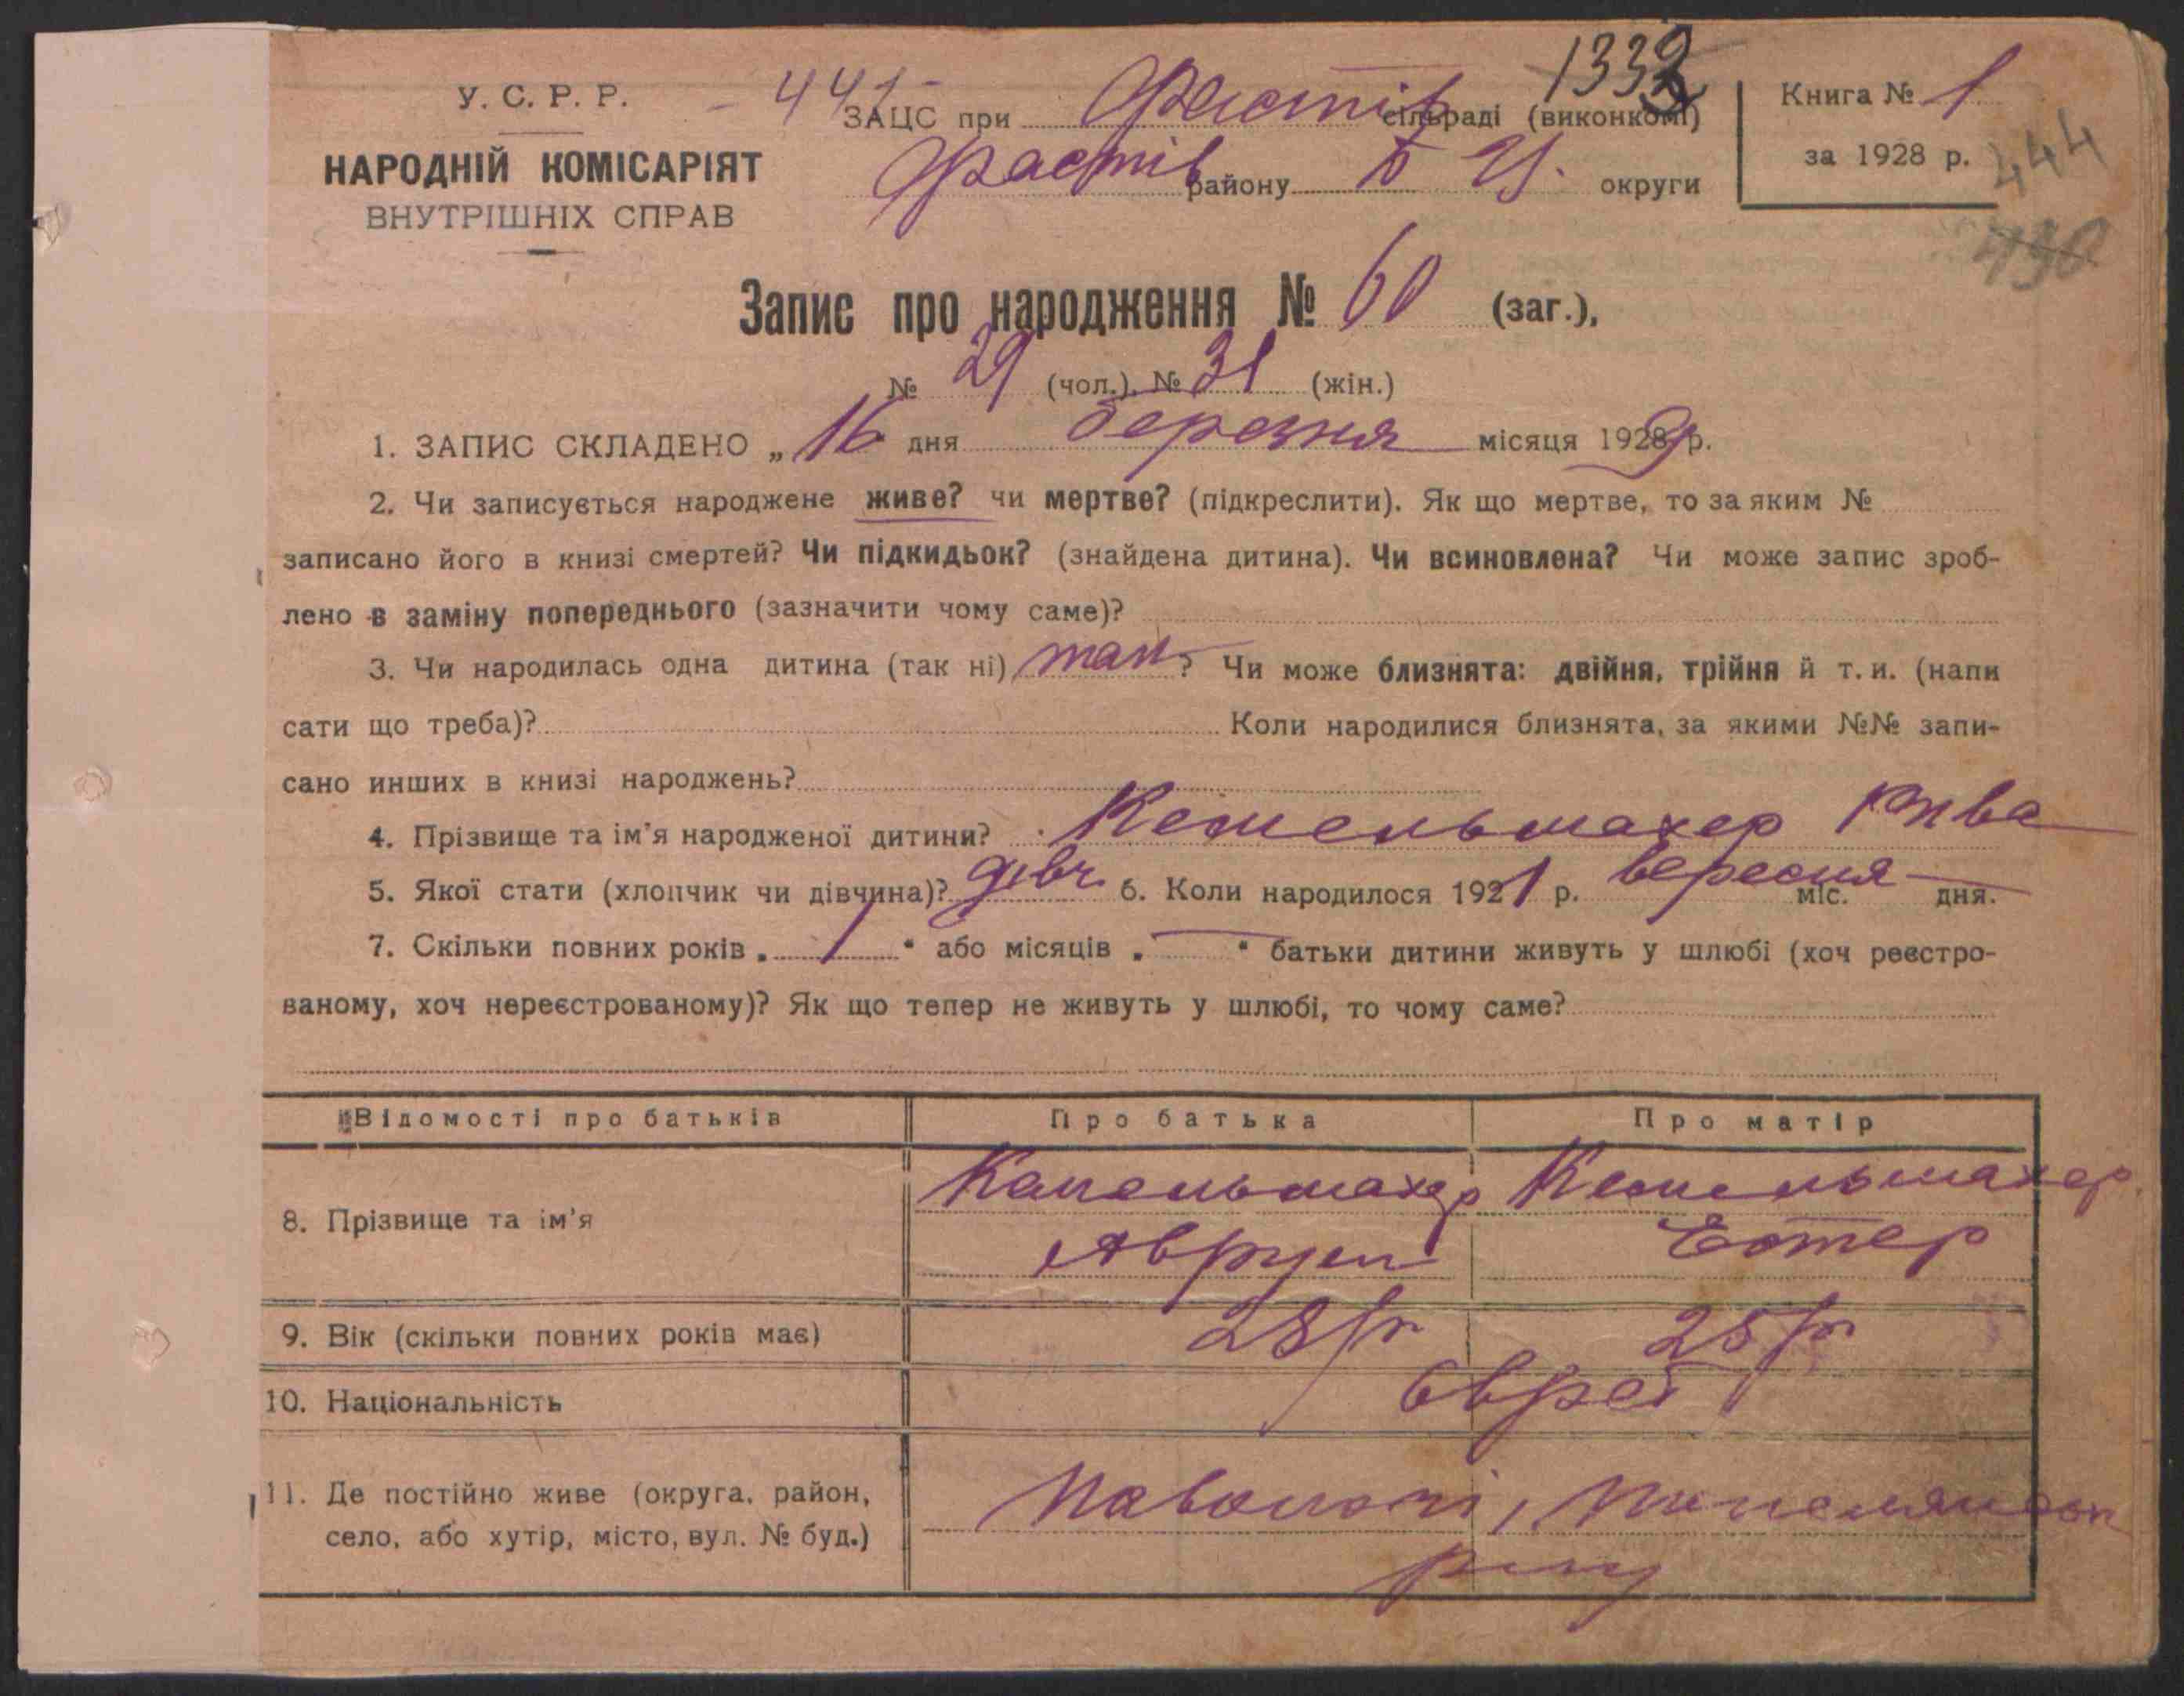 У. С. Р. Р.
НАРОДНІЙ КОМІСАРІЯТ
ВНУТРІШНІХ СПРАВ
ЗАЦС при Фастів сільраді (виконкомі)
Фастів району Б Ц. округи
1332
Книга № 1
за 1928 р.
444
430
Запис про народження № 60 (заг.),
№ 29 (чол.), № 31 (жін.)
1. ЗАПИС СКЛАДЕНО „ 16 " дня березня місяця 1929 р.
2. Чи записується народжене живе? чи мертве? (підкреслити). Як що мертве, то за яким №
записано його в книзі смертей? Чи підкидьок? (знайдена дитина). Чи всиновлена? Чи може запис зроб-
лено в заміну попереднього (зазначити чому саме)?
3. Чи народилась одна дитина (так ні) так ? Чи може близнята: двійня, трійня й т. и. (напи
сати що треба)? Коли народилися близнята, за якими №№ запи-
сано инших в книзі народжень?
4. Прізвище та ім'я народженої дитини? Кешельмахер Рива
5. Якої стати (хлопчик чи дівчина)? дівч. 6. Коли народилося 1921 р. вересня міс. дня.
7. Скільки повних років „ 1 " або місяців „ — " батьки дитини живуть у шлюбі (хоч реєстро-
ваному, хоч нереєстрованому)? Як що тепер не живуть у шлюбі, то чому саме?
Відомості про батьків Про батька Про матір
8. Прізвище та ім'я Кешельмахер Кешельмахер
Аврум Естер
9. Вік (скільки повних років має) 28 р. 25 р.
10. Національність євреї
11. Де постійно живе (округа, район,
село, або хутір, місто, вул. № буд.)
Паволочі,
р-ну